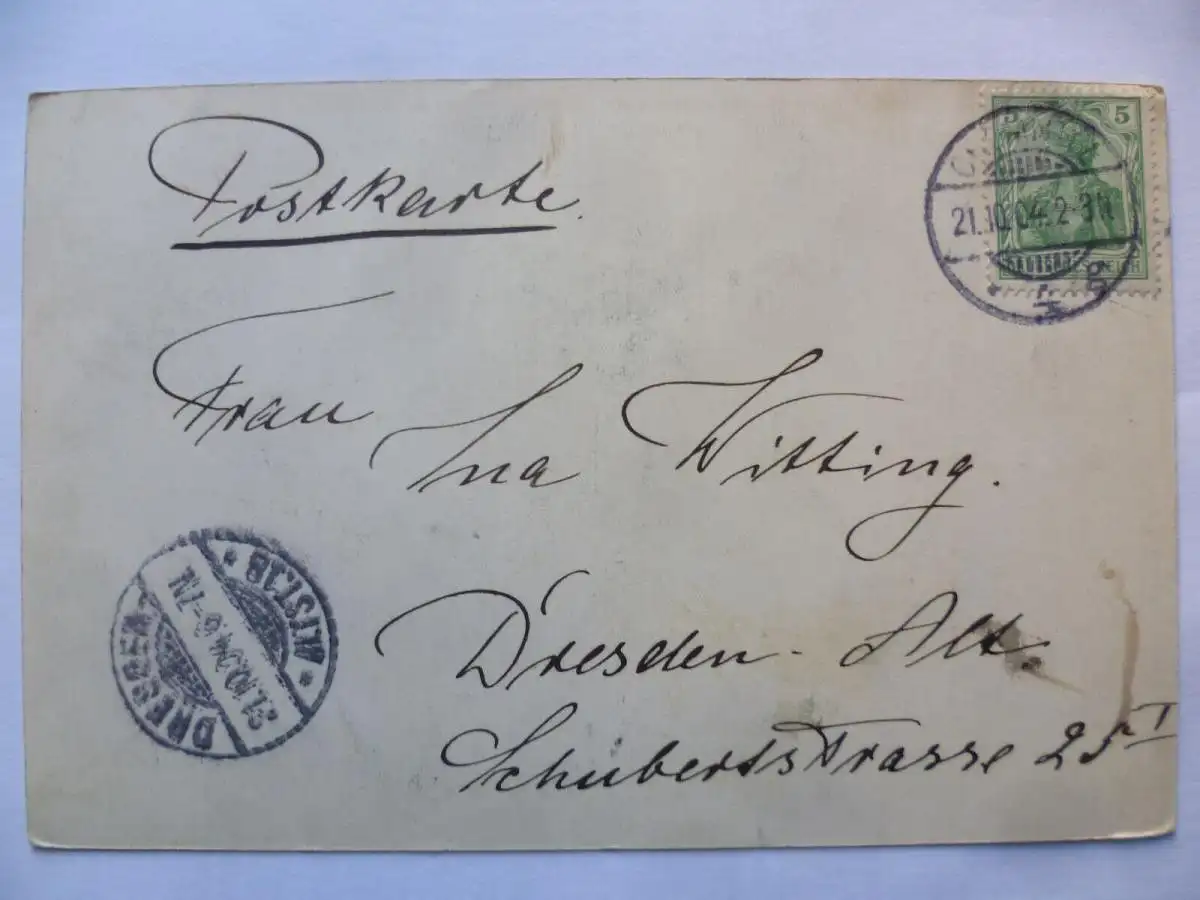 Postkarte.
5 5
21.10.04. 2-3N
Frau Ina Witting.
Dresden-Alt.
Schubertsstrasse 25 I
DRESDEN
21.10.04. 6-7N
ALTST.